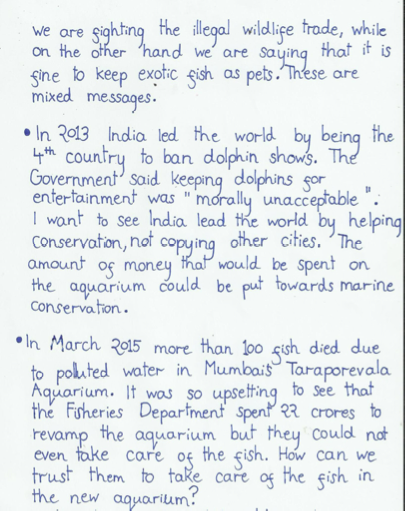 we are fighting the illegal wildlife trade, while
on the other hand we are saying that it is
fine to keep exotic fish as pets. These are
mixed messages.
• In 2013 India led the world by being the
4th country to ban dolphin shows. The
Government said keeping dolphins for
entertainment was "morally unacceptable".
I want to see India lead the world by helping
conservation, not copying other cities. The
amount of money that would be spent on
the aquarium could be put towards marine
conservation.
• In March 2015 more than 100 fish died due
to polluted water in Mumbai's Taraporevala
Aquarium. It was so upsetting to see that
the Fisheries Department spent 22 crores to
revamp the aquarium but they could not
even take care of the fish. How can we
trust them to take care of the fish in
the new aquarium?